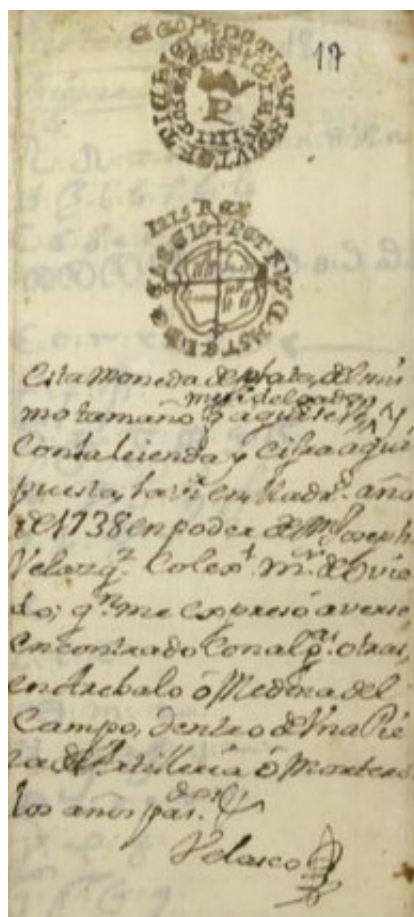 17
P
Esta moneda de plata, del mis
mo tamaño q aqui se ve, y
mui delgada,
Con la leienda y cifra aqui
puesta, la vi en Madr.d año
de 1738 en poder de Dn Joseph
Velazq.z Coleg.l m.or de Ovie
do; q.n me expresó averse
encontrado con alg.as otras,
en Arebalo ó Medina del
Campo, dentro de Vna Pie
za de Artilleria ó Mortero
los años pas.dos
Velasco